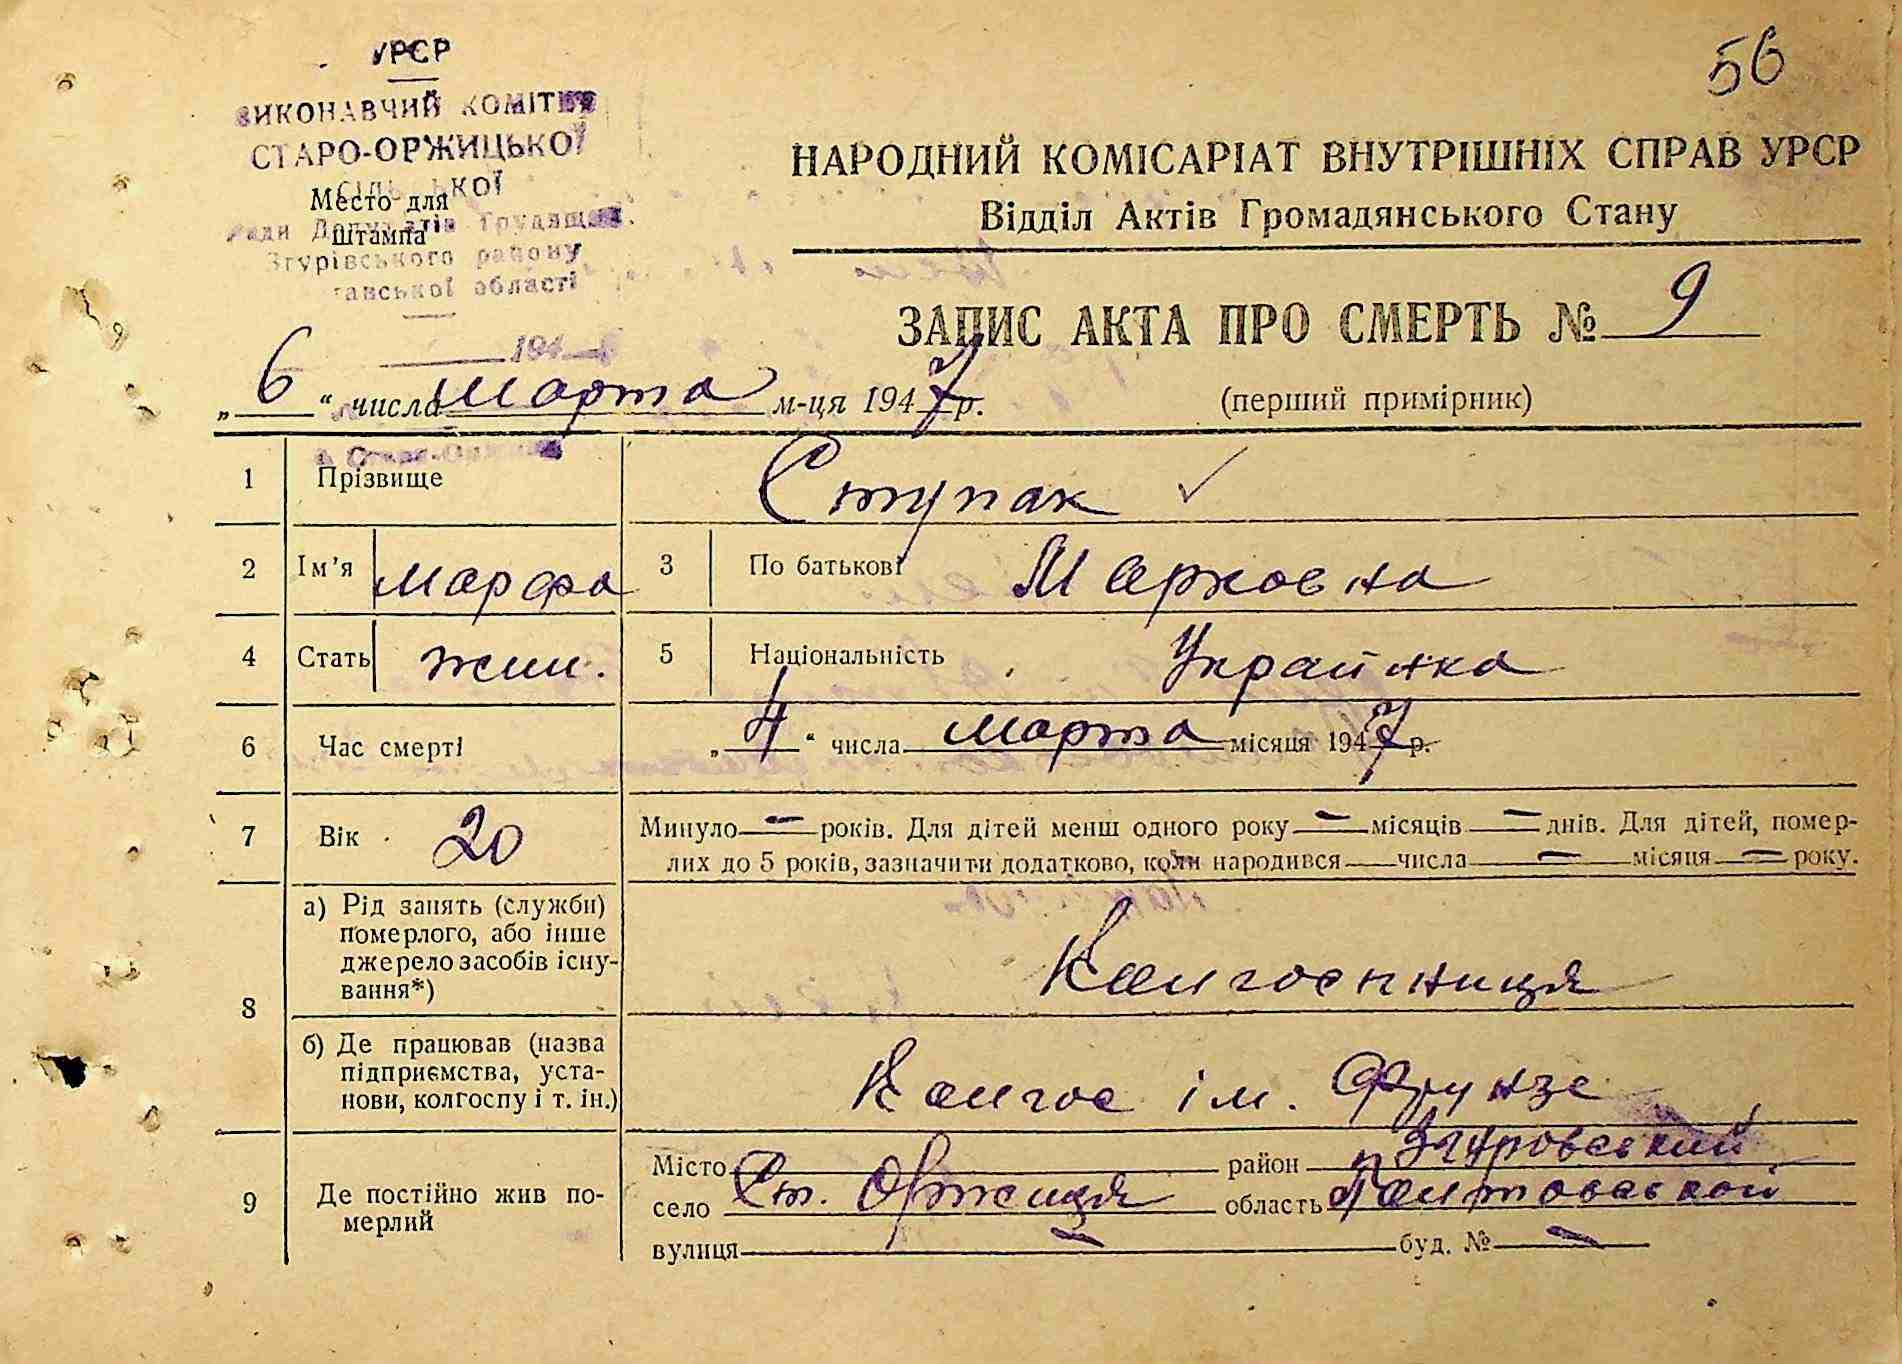 56
УРСР
ВИКОНАВЧИЙ КОМІТЕТ
СТАРО-ОРЖИЦЬКОЇ
Место для
Ради Депутатів Трудящих
Штампа
Згурівського району
тавської області
194
НАРОДНИЙ КОМІСАРІАТ ВНУТРІШНІХ СПРАВ УРСР
Відділ Актів Громадянського Стану
ЗАПИС АКТА ПРО СМЕРТЬ № 9
„6“ числа марта м-ця 1947 р. (перший примірник)
1 Прізвище Ступак
2 Ім'я Марфа 3 По батькові Марковна
4 Стать жин. 5 Національність Украйнка
6 Час смерті „4“ числа марта місяця 1947 р.
7 Вік 20 Минуло — років. Для дітей менш одного року — місяців — днів. Для дітей, помер-
лих до 5 років, зазначити додатково, коли народився — числа — місяця — року.
8 а) Рід занять (служби)
померлого, або інше
джерело засобів існу-
вання*) Колгоспниця
б) Де працював (назва
підприємства, уста-
нови, колгоспу і т. ін.) Колгос ім. Фрунзе
9 Де постійно жив по-
мерлий
Місто район Згуровський
село Ст. Оржиця область Полтовський
вулиця — буд. № —